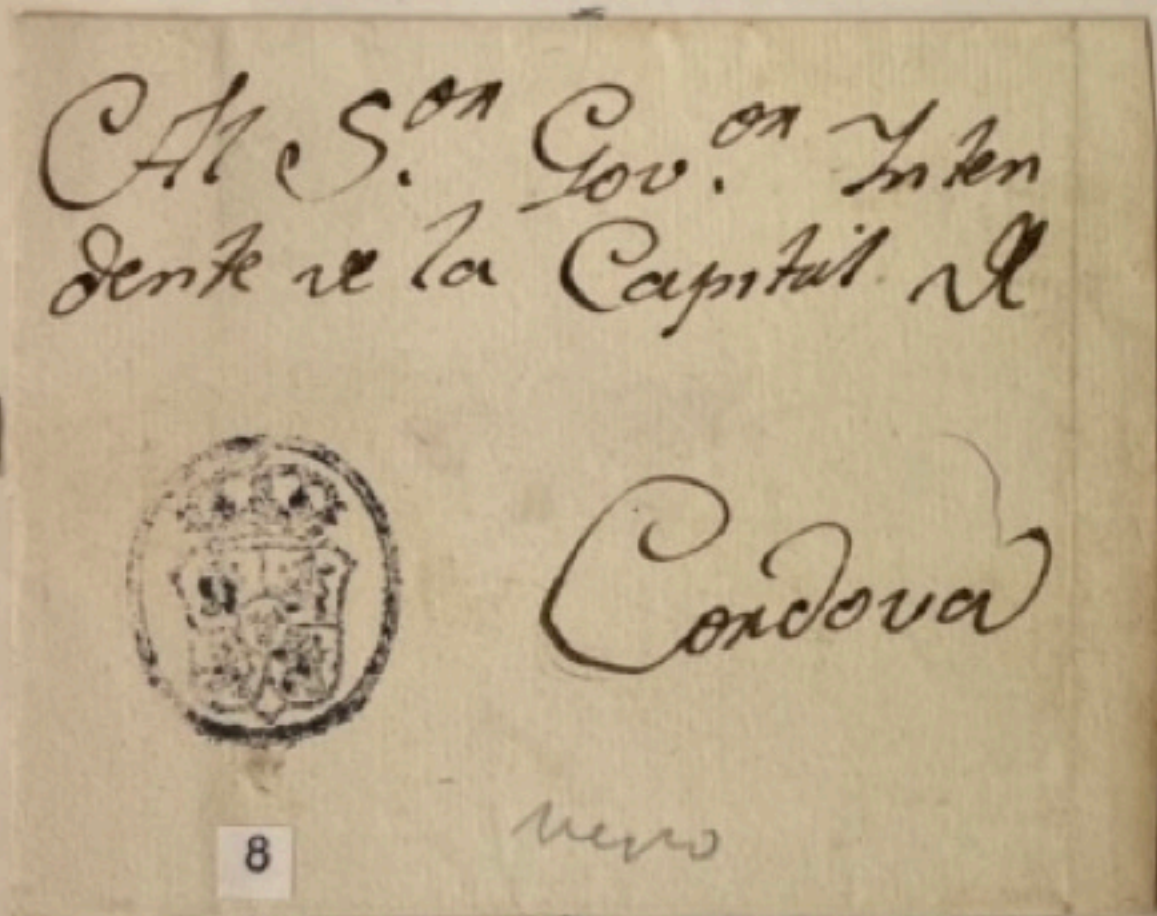 Al S.or Gov.or Inten
dente de la Capital de
Cordova
8